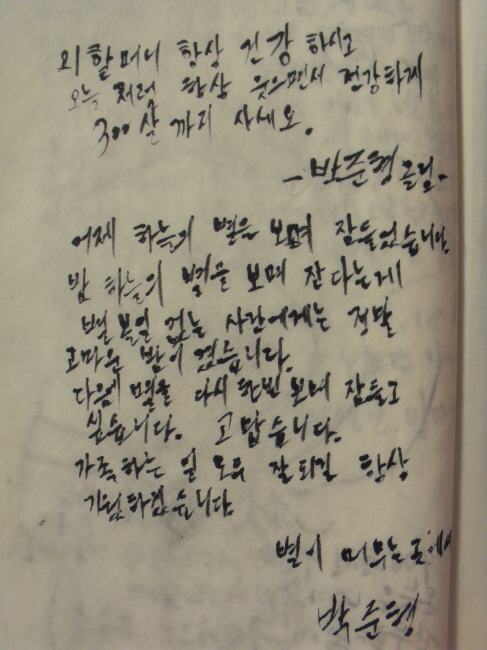 외할머니 항상 건강하시고
오늘처럼 항상 웃으면서 건강하게
300살까지 사세요.
- 박준형 올림.
어제 하늘의 별을 보며 잠들었습니다.
밤 하늘의 별을 보며 잔다는게
별 볼일 없는 사람에게는 정말
고마운 밤이 였습니다.
다음에 다시 한번 보며 잠들고
싶습니다. 고맙습니다.
가족 하는 일 모두 잘되길 항상
기원하겠습니다.
별이 머무는 곳에서
박준형